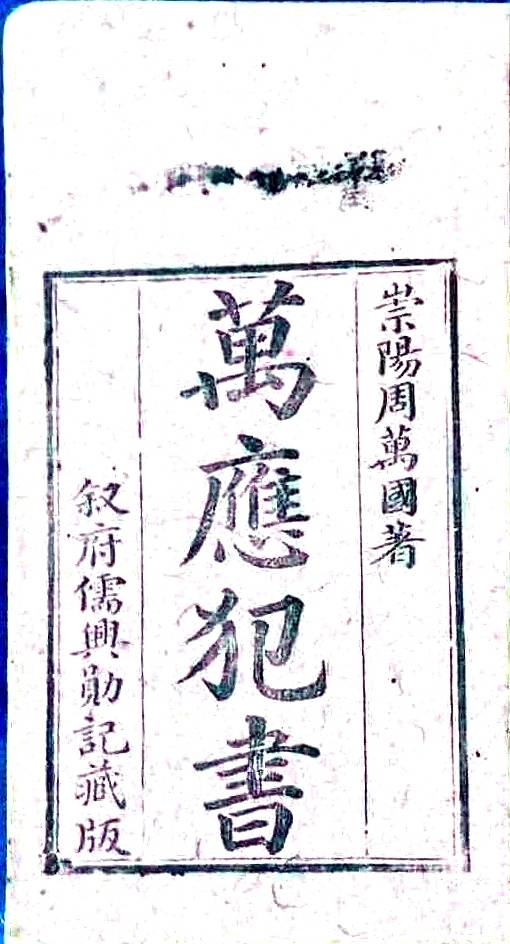 崇陽周萬國著
萬應犯書
敘府儒興勛記藏版